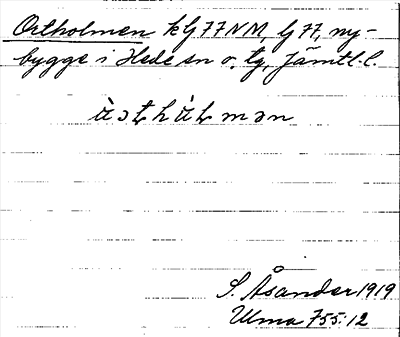 Ortholmen kG77NM, G77, ny-
bygge i Hede sn o. tg, Jämtl. l.
ὰɔthὰtmən
S. Åsander 1919
Ulma 755:12